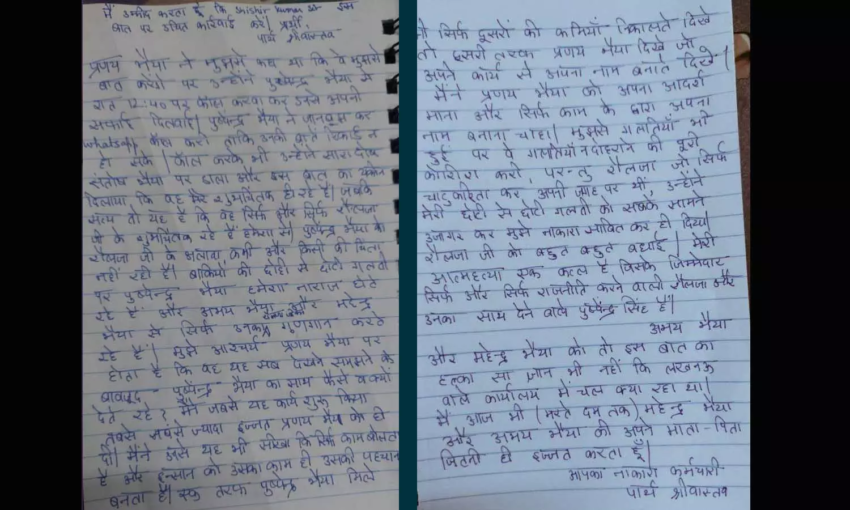 मैं उम्मीद करता हूँ कि Shishir Kumar इस
बात पर उचित कार्रवाई करें। प्रार्थी,
पार्थ श्रीवास्तव
प्रणय भैया ने मुझसे कहा था कि वे मुझसे
बात करेंगे पर उन्होंने पुष्पेन्द्र भैया से
रात 12:40 पर कॉल करवा कर उनसे अपनी
सफाई दिलवाई। पुष्पेन्द्र भैया ने जानबूझ कर
whatsapp कॉल करी ताकि उनकी बातें रिकॉर्ड न
हो सके। कॉल करके भी उन्होंने सारा दोष
संतोष भैया पर डाला और इस बात का यकीन
दिलाया कि वह मेरे शुभचिंतक ही रहे हैं। जबकि
सत्य तो यह है कि वह सिर्फ और सिर्फ शैलजा
जी के शुभचिंतक रहे हैं हमेशा से। पुष्पेन्द्र भैया को
शैलजा जी के अलावा कभी और किसी की चिंता
नहीं रही है। बाकियों की छोटी से छोटी गलती
पर पुष्पेन्द्र भैया हमेशा नाराज़ होते
रहे हैं और अभय भैया और महेन्द्र
भैया से सिर्फ उनका गुणगान करते
रहे हैं। मुझे आश्चर्य प्रणय भैया पर
होता है कि वह यह सब देखने समझने के
बावजूद पुष्पेन्द्र भैया का साथ कैसे व क्यों
देते रहे? मैंने जबसे यह कार्य शुरू किया
तबसे सबसे ज्यादा इज्जत प्रणय भैया को ही
दी। मैंने उनसे यह भी सीखा कि सिर्फ काम बोलता
है और इन्सान को उसका काम ही उसकी पहचान
बनता है। एक तरफ पुष्पेन्द्र भैया मिले
जो सिर्फ दूसरों की कमियाँ निकालते दिखे
तो दूसरी तरफ प्रणय भैया दिखे जो
अपने कार्य से अपना नाम बनाते दिखे।
मैंने प्रणय भैया को अपना आदर्श
माना और सिर्फ काम के द्वारा अपना
नाम बनाना चाहा। मुझसे गलतियाँ भी
हुई पर वे गलतियाँ न दोहराने की पूरी
कोशिश करी, परन्तु शैलजा जो सिर्फ
चाटुकारिता कर अपनी जगह पर थी, उन्होंने
मेरी छोटी से छोटी गलती को सबके सामने
उजागर कर मुझे नाकारा साबित कर ही दिया।
शैलजा जी को बहुत बहुत बधाई। मेरी
आत्महत्या एक कत्ल है जिसके जिम्मेदार
सिर्फ और सिर्फ राजनीति करने वाली शैलजा और
उनका साथ देने वाले पुष्पेंद्र सिंह हैं।
अभय भैया
और महेन्द्र भैया को तो इस बात का
हल्का सा ज्ञान भी नहीं कि लखनऊ
वाले कार्यालय में चल क्या रहा था।
मैं आज भी (मरते दम तक) महेन्द्र भैया
और अभय भैया की अपने माता-पिता
जितनी ही इज्जत करता हूँ।
आपका नाकारा कर्मचारी
पार्थ श्रीवास्तव